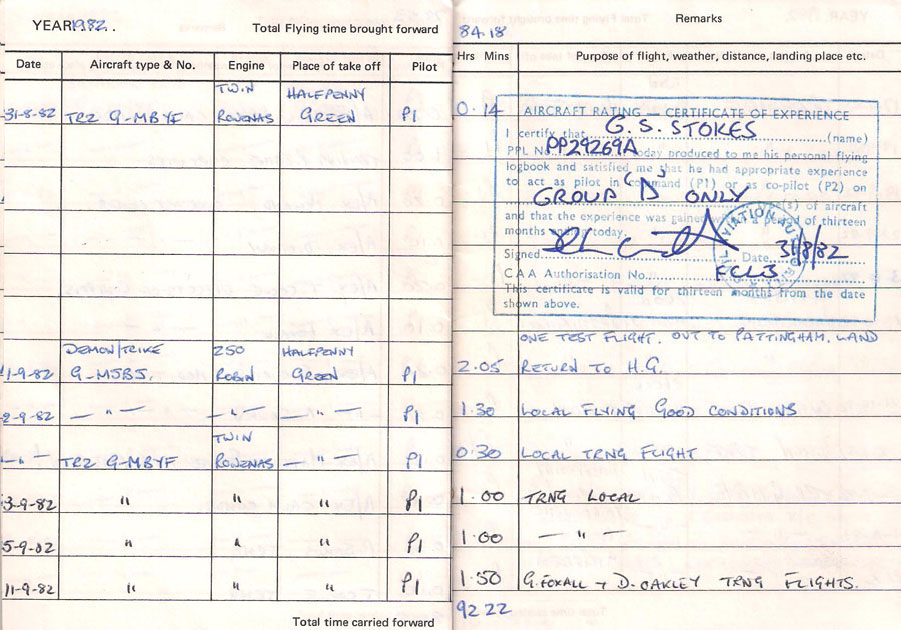 YEAR 1982..
Total Flying time brought forward
84.18
Remarks
Date Aircraft type & No. Engine Place of take off Pilot Hrs Mins Purpose of flight, weather, distance, landing place etc.
TWIN HALFPENNY
31-8-82 TR2 G-MBYF ROWENAS GREEN P1 0.14
AIRCRAFT RATING — CERTIFICATE OF EXPERIENCE
I certify that G.S. STOKES (name)
PPL No. PP29269A today produced to me his personal flying
logbook and satisfied me that he had appropriate experience
to act as pilot in command (P1) or as co-pilot (P2) on
GROUP 'D' ONLY type(s) of aircraft
and that the experience was gained within a period of thirteen
months ending today.
Signed Date 31/8/82
CAA Authorisation No. FCL3
This certificate is valid for thirteen months from the date
shown above.
ONE TEST FLIGHT. OUT TO PATTINGHAM, LAND
DEMON/TRIKE 250 HALFPENNY
1-9-82 G-MJBJ. ROBIN GREEN P1 2.05 RETURN TO H.G.
2-9-82 — " — — " — — " — P1 1.30 LOCAL FLYING GOOD CONDITIONS
TWIN
— " — TR2 G-MBYF ROWENAS — " — P1 0.30 LOCAL TRNG FLIGHT
3-9-82 " " " P1 1.00 TRNG LOCAL
5-9-82 " " " P1 1.00 — " —
11-9-82 " " " P1 1.50 G. FOXALL + D. OAKLEY TRNG FLIGHTS.
Total time carried forward
92 22